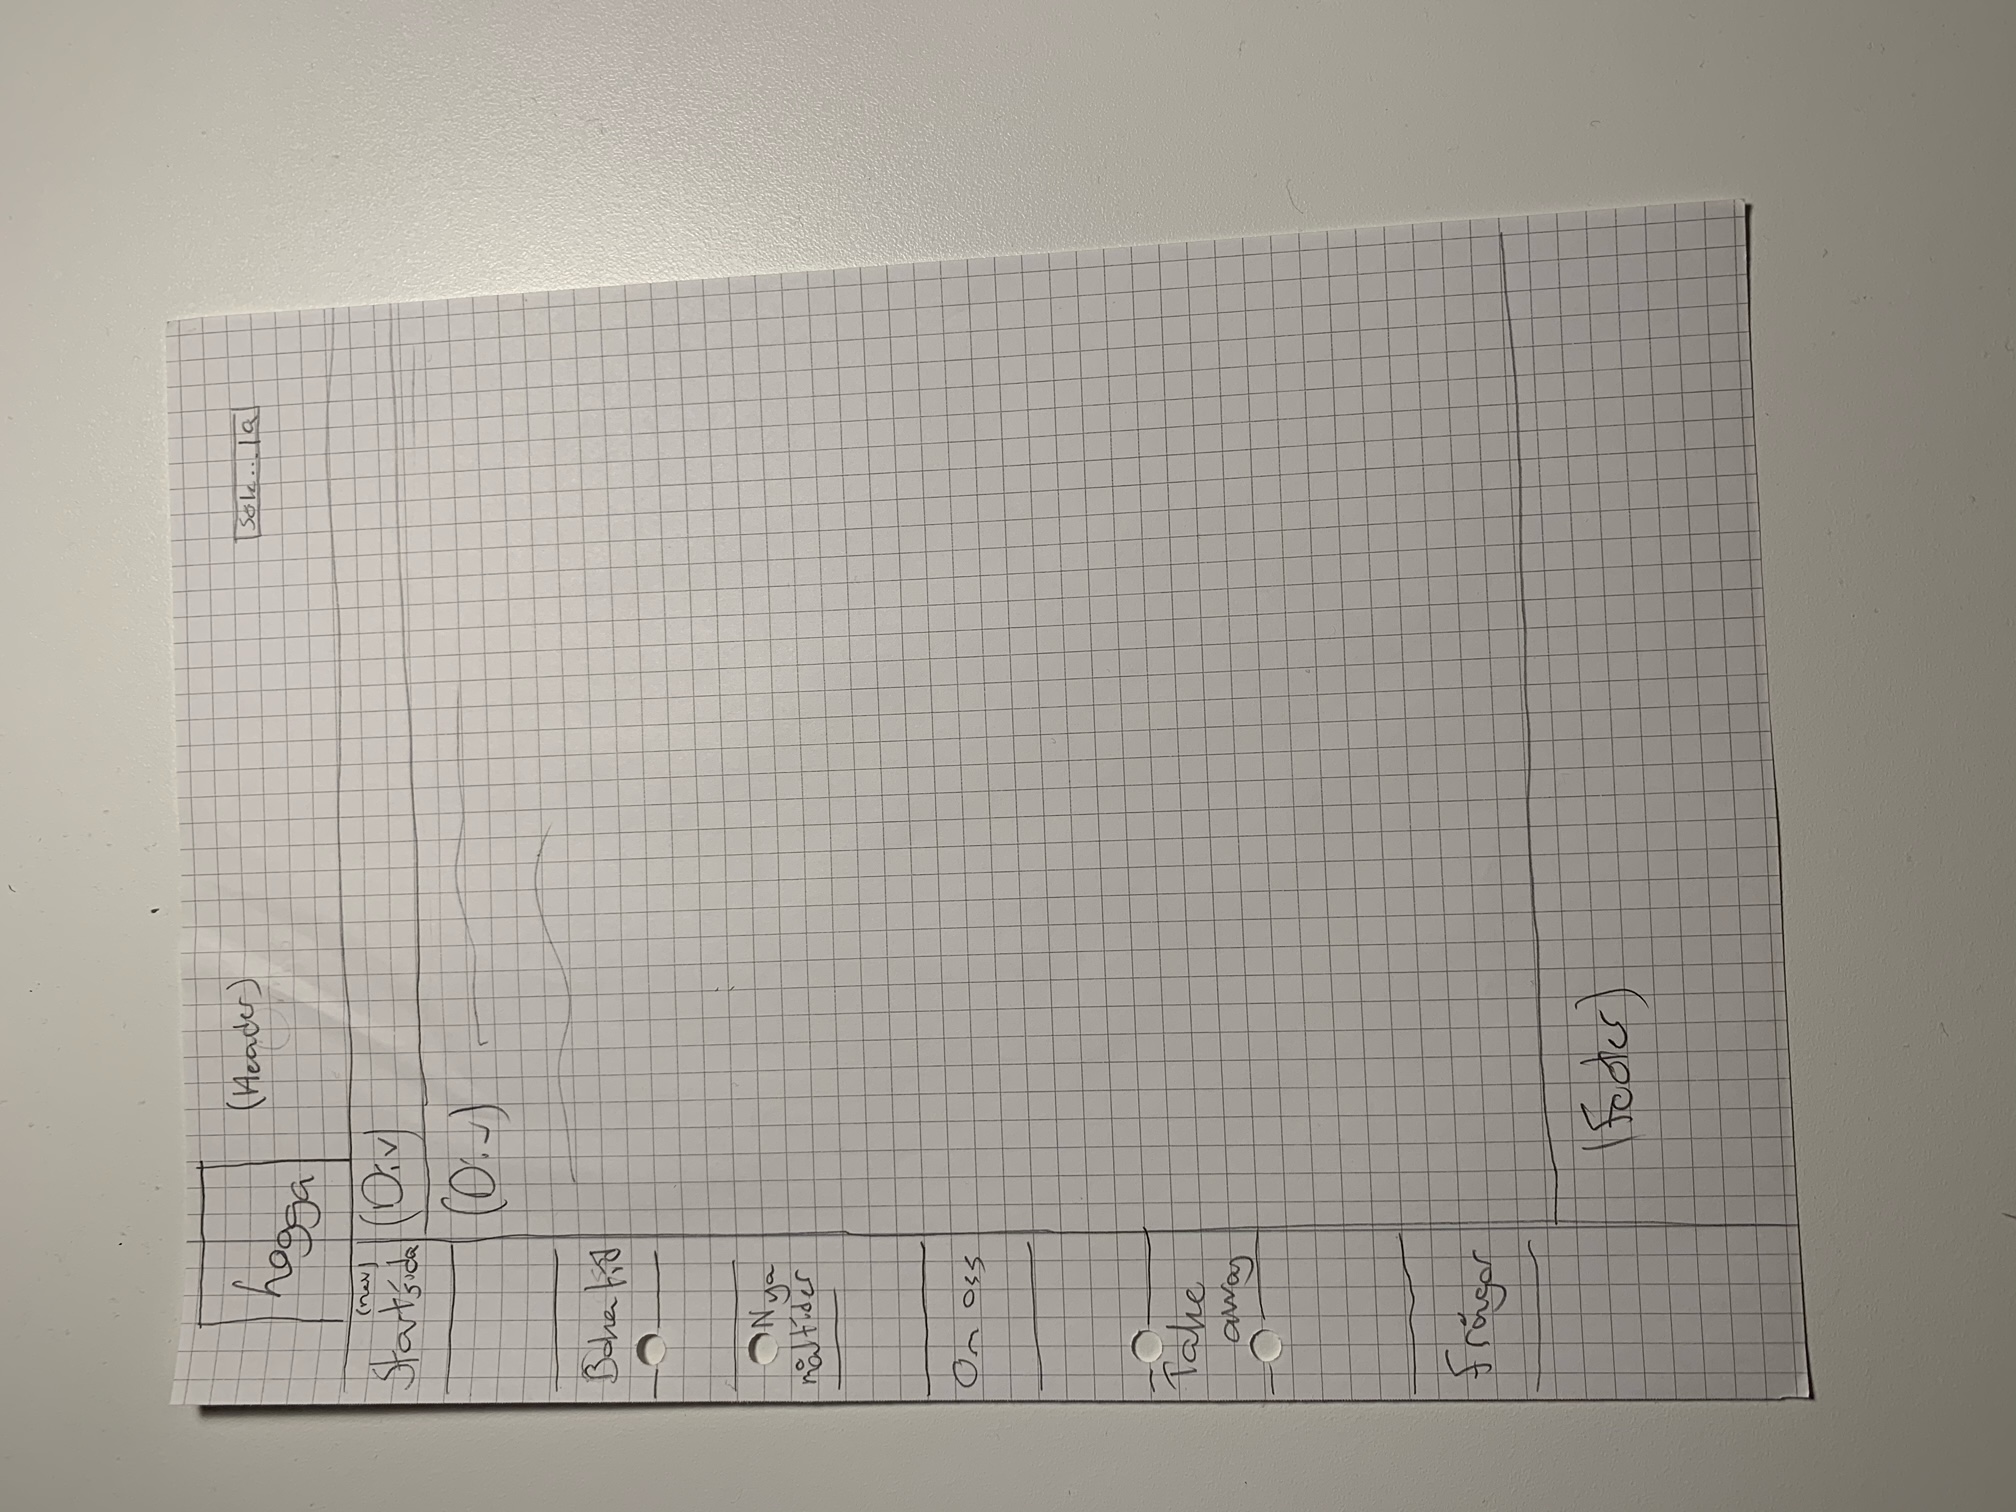 hogga
(Header)
Sök... | Q
(nav)
Startsida
(Div)
(Div)
Boka tid
Nya
måltider
Om oss
Take
away
Frågor
(Footer)